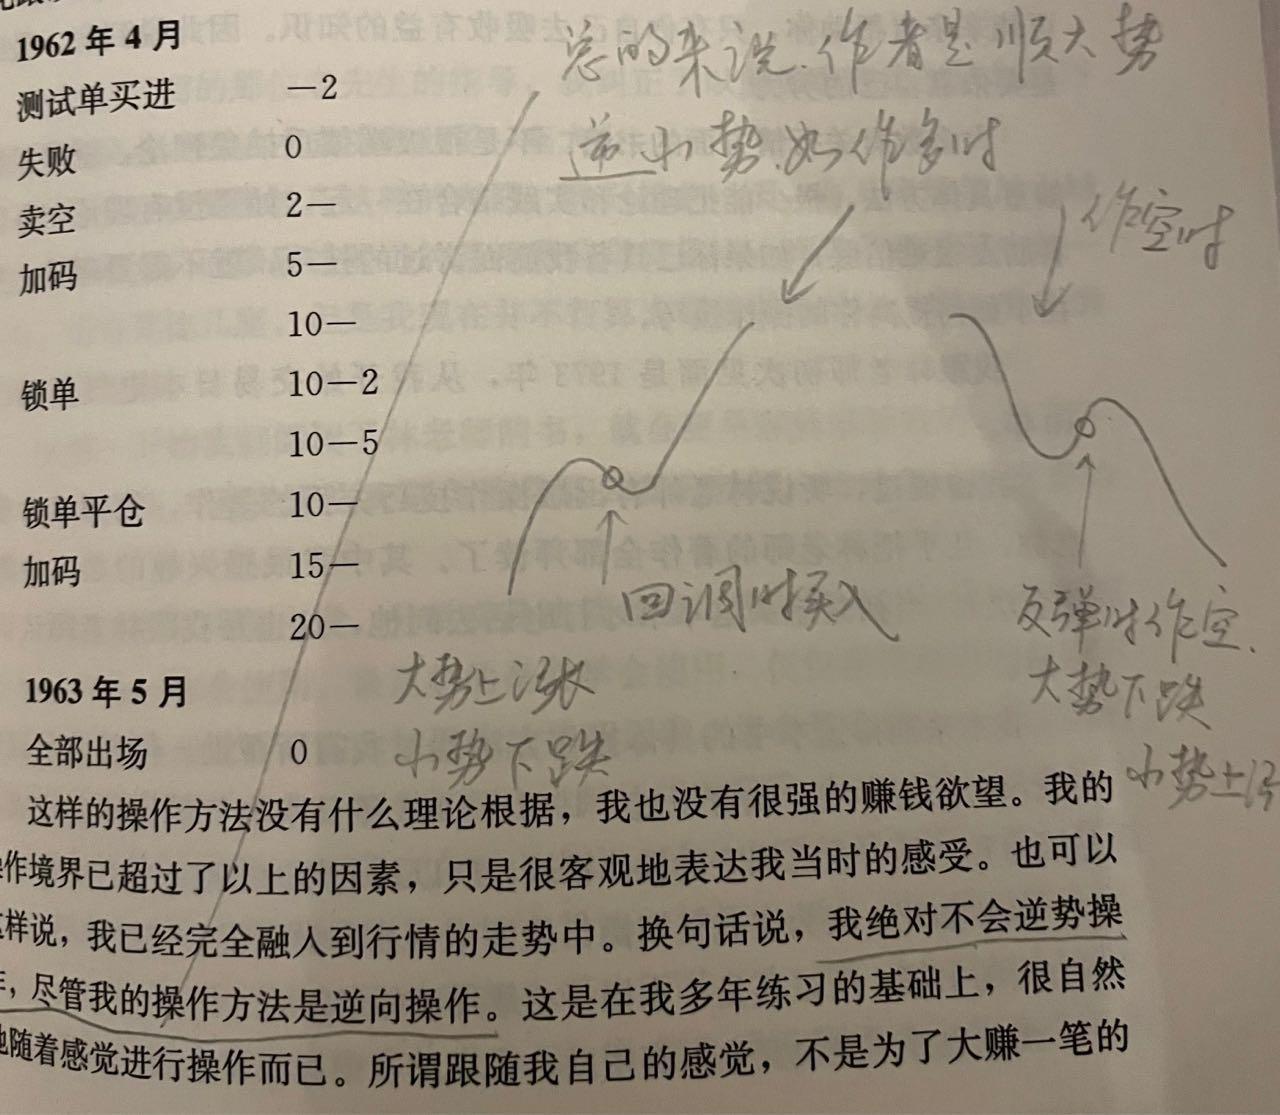 1962 年 4 月
测试单买进 —2
失败 0
卖空 2—
加码 5—
10—
锁单 10—2
10—5
锁单平仓 10—
加码 15—
20—
1963 年 5 月
全部出场 0
总的来说、作者是顺大势
逆小势.如作多时
作空时
回调时买入
大势上涨
小势下跌
反弹时作空.
大势下跌
小势上涨
这样的操作方法没有什么理论根据，我也没有很强的赚钱欲望。我的
操作境界已超过了以上的因素，只是很客观地表达我当时的感受。也可以
这样说，我已经完全融入到行情的走势中。换句话说，我绝对不会逆势操
作，尽管我的操作方法是逆向操作。这是在我多年练习的基础上，很自然
地随着感觉进行操作而已。所谓跟随我自己的感觉，不是为了大赚一笔的